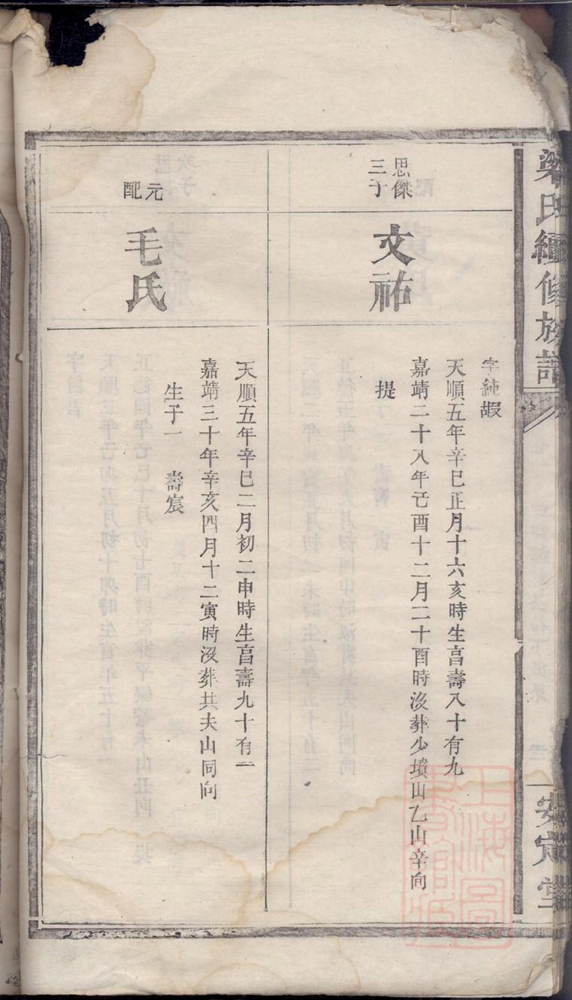 梁氏續修族譜
安定堂
思傑
三子
文祐
字純嘏
天順五年辛巳正月十六亥時生享壽八十有九
嘉靖二十八年己酉十二月二十酉時沒葬少墳山乙山辛向
提
元配
毛氏
天順五年辛巳二月初二申時生享壽九十有一
嘉靖三十年辛亥四月十二寅時沒葬共夫山同向
生子一 壽宸
上海圖書館藏